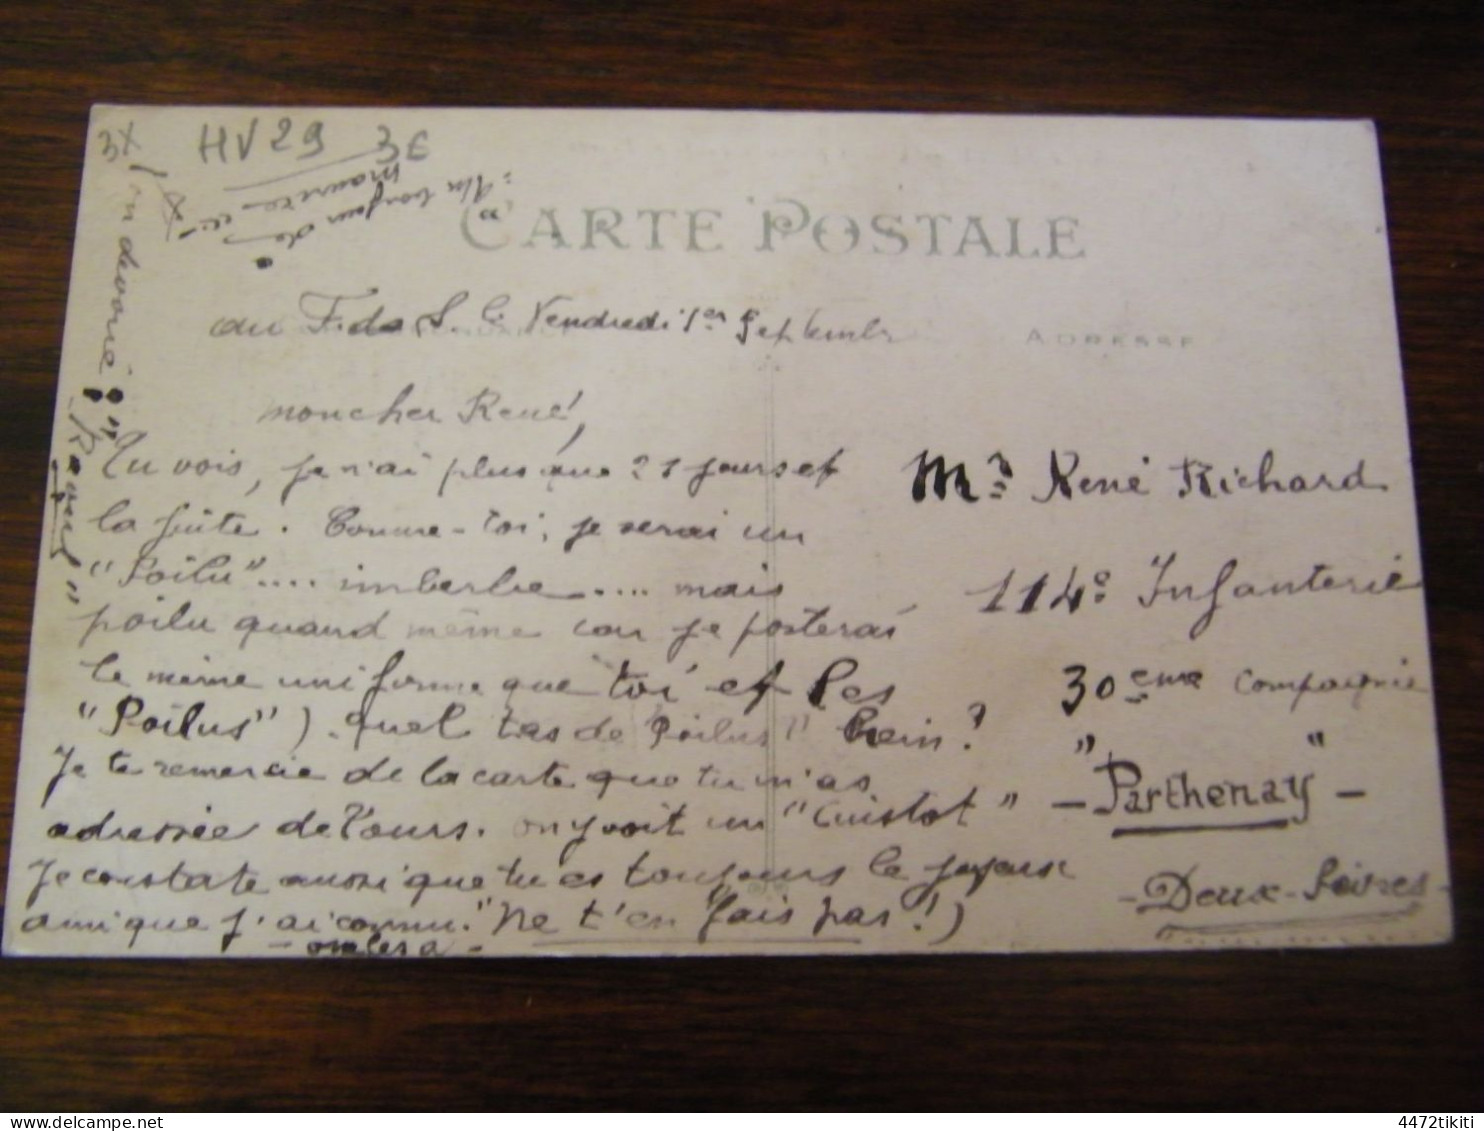 3X
HV29 3€
"Un bonjour de
Maurice
CARTE POSTALE
au F. de S. le Vendredi 1er Septembre
ADRESSE
mon cher René,
Tu vois, je n'ai plus que 21 jours et
la fuite. Comme-toi, je serai un
"Poilu".... imberbe..... mais
poilu quand même car je porterai
le même uniforme que toi et les
"Poilus") quel tas de Poilus" hein?
Je te remercie de la carte que tu m'as
adressée de l'ours. on y voit un "Cuistot"
Je constate aussi que tu es toujours le joyeux
ami que j'ai connu. "Ne t'en fais pas!)
- on les a -
dévoré!
"Raoul"
Mr René Richard
114e Infanterie
30eme Compagnie
" "
- Parthenay -
- Deux-Sèvres -
4472tikiti